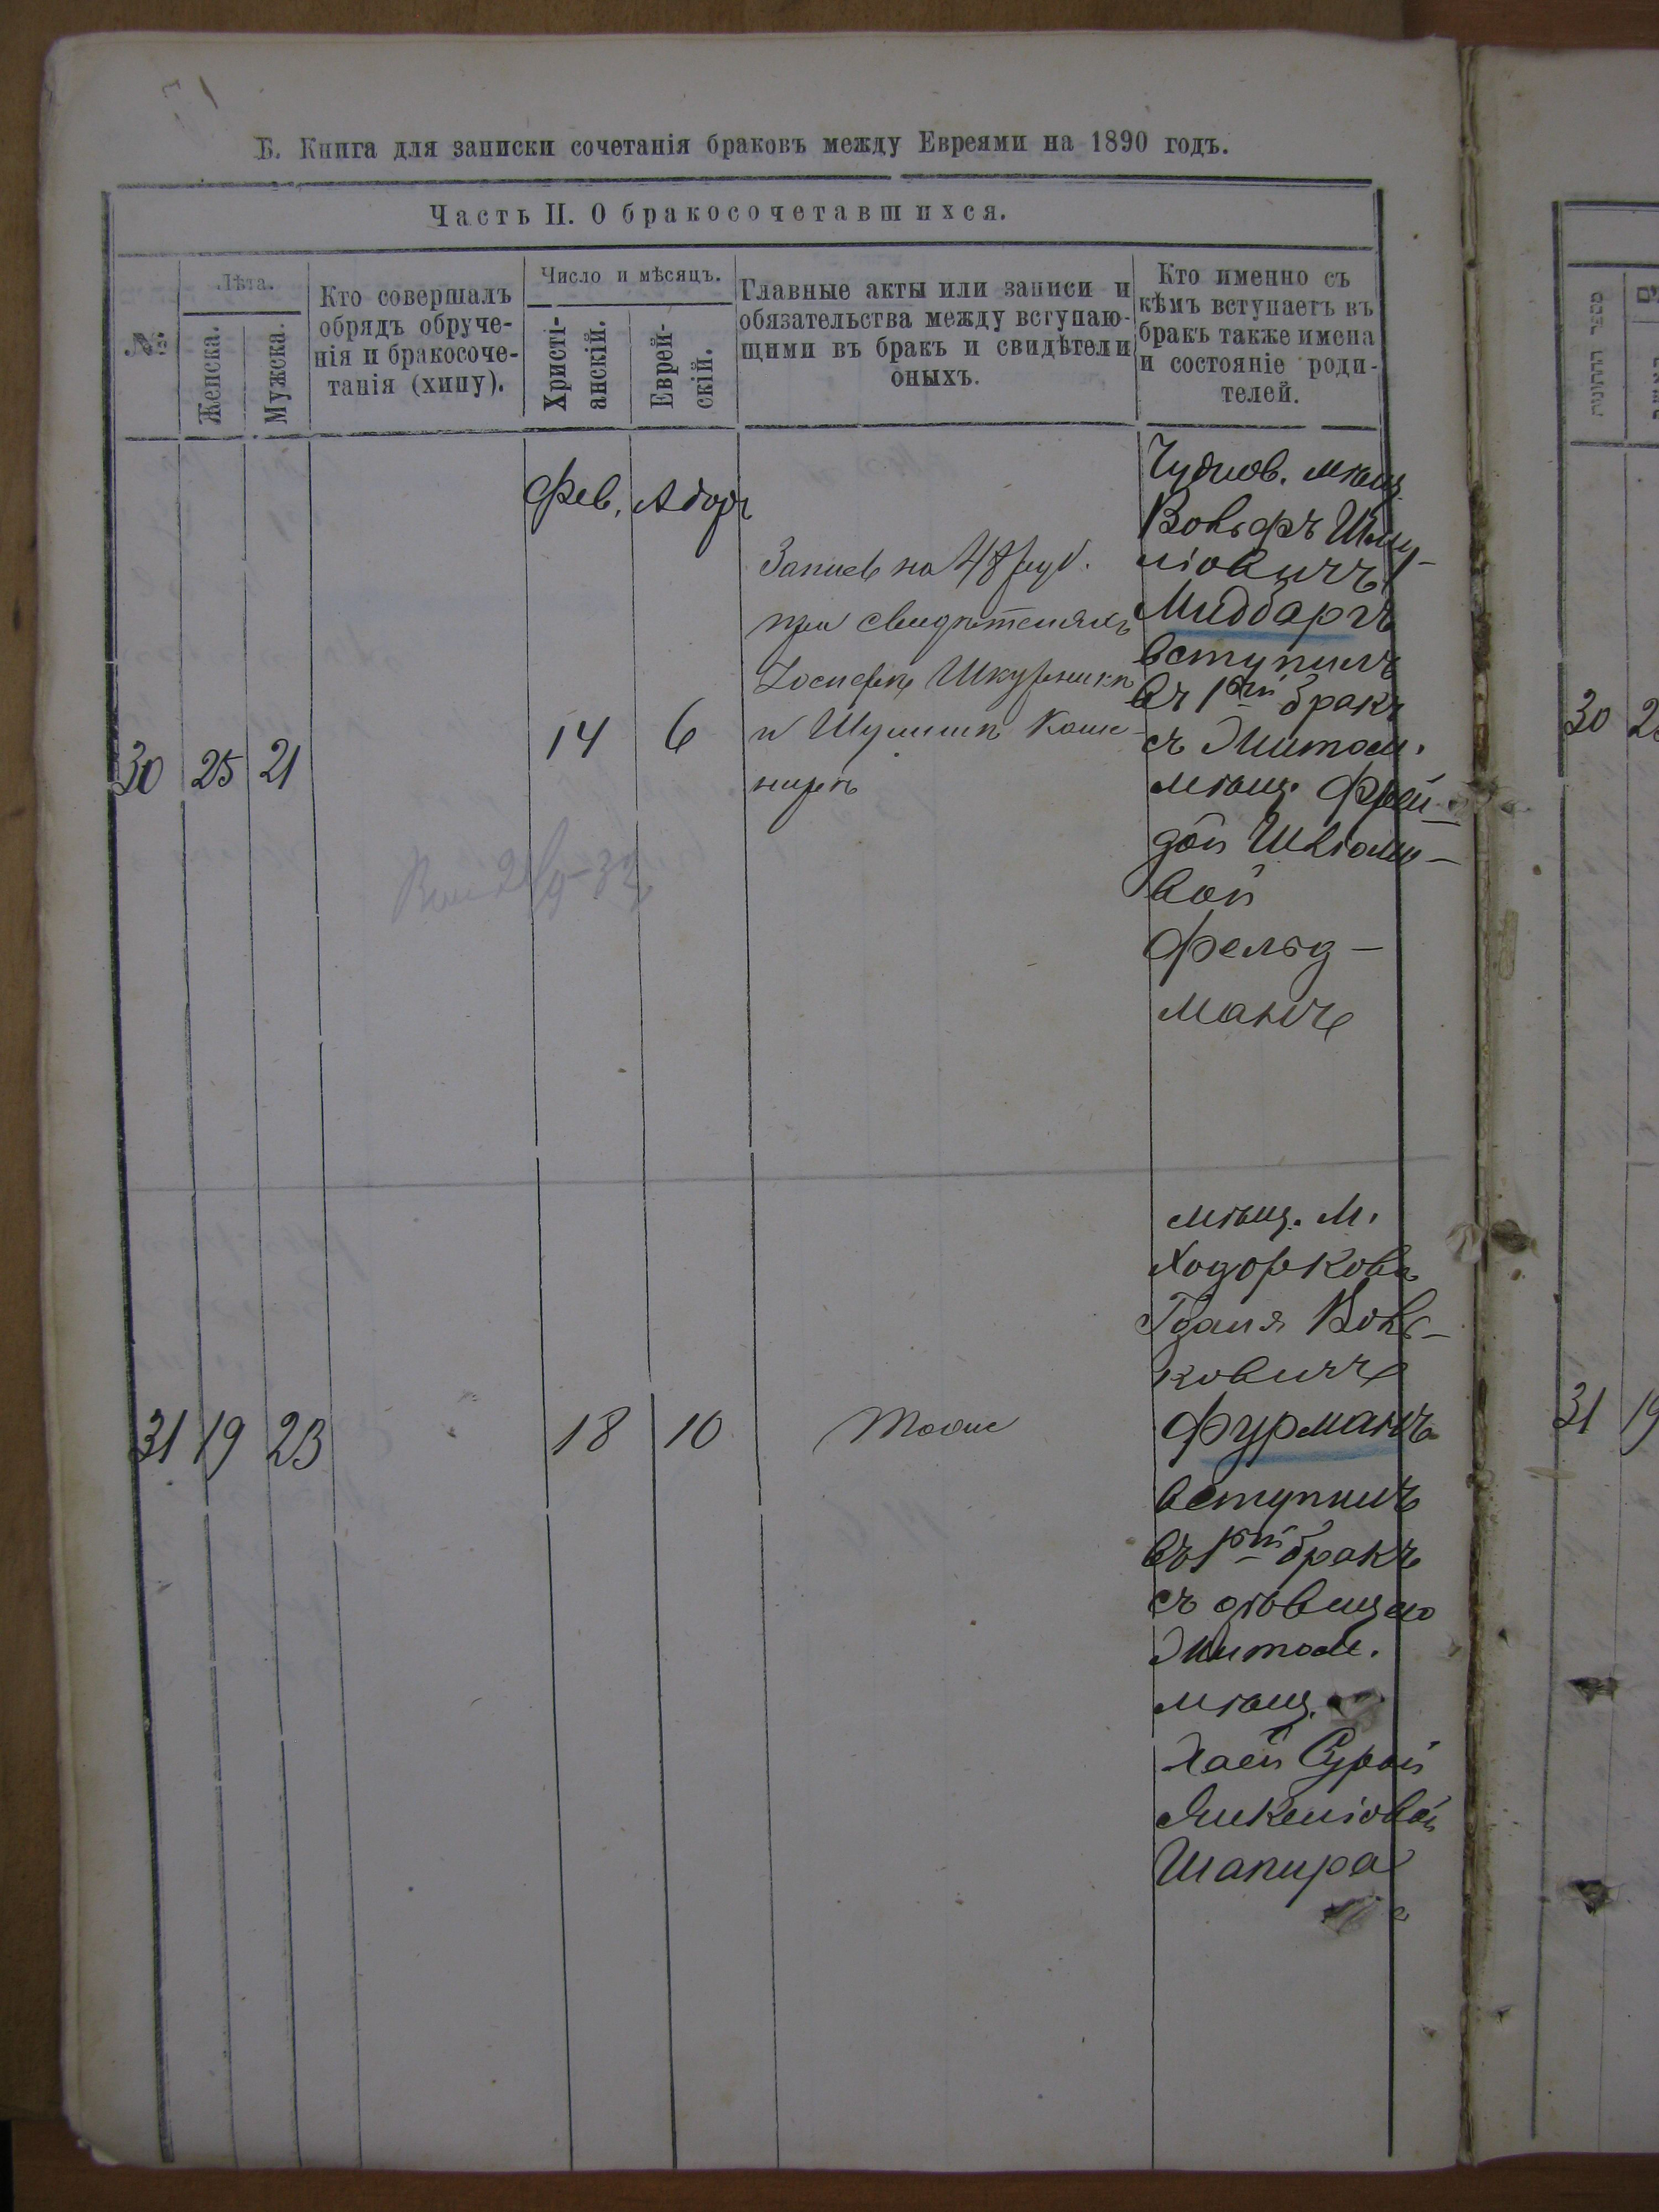 Б. Книга для записки сочетанія браковъ между Евреями на 1890 годъ.
Часть II. О бракосочетавшихся.
№
Лѣта.
Женска.
Мужска.
Кто совершалъ
обрядъ обруче-
нія и бракосоче-
танія (хипу).
Число и мѣсяцъ.
Христі-
анскій.
Еврей-
скій.
Главные акты или записи и
обязательства между вступаю-
щими въ бракъ и свидѣтели
оныхъ.
Кто именно съ
кѣмъ вступаетъ въ
бракъ также имена
и состояніе роди-
телей.
Фев. Адоръ
30 25 21
14 6
Запись на 48 руб.
при свидѣтеляхъ
Іосифѣ Шкурникѣ
и Шулимѣ Каше-
нирѣ
Чуднов. мѣщ.
Вольфъ Шму-
ліовичъ
Мидбаръ
вступилъ
въ 1ый бракъ
съ Житом.
мѣщ. Фрей-
дой Шліомо-
вой
Фельд-
манъ
31 19 23
18 10
Тоже
мѣщ. М.
Ходоркова
Гдаля Воль-
ковичъ
Фурманъ
вступилъ
въ 1ый бракъ
съ дѣвицею
Житом.
мѣщ.
Хаей Сурой
Янкеліовой
Шапира
30
31 19